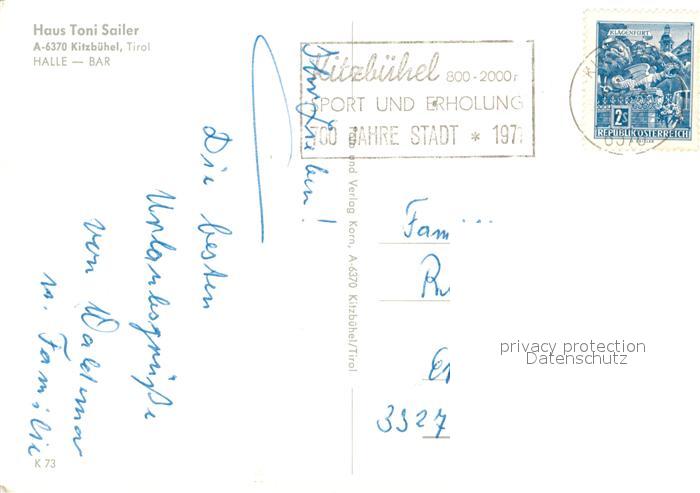 Haus Toni Sailer
A-6370 Kitzbühel, Tirol
HALLE — BAR
Ihr Lieben!
Die besten
Urlaubsgrüße
von Waldemar
u. Familie
K 73
und Verlag Korn, A-6370 Kitzbühel/Tirol
Kitzbühel 800-2000 m
SPORT UND ERHOLUNG
700 JAHRE STADT * 1971
KLAGENFURT
2S
REPUBLIK ÖSTERREICH
6370
Fam ...
3327
privacy protection
Datenschutz